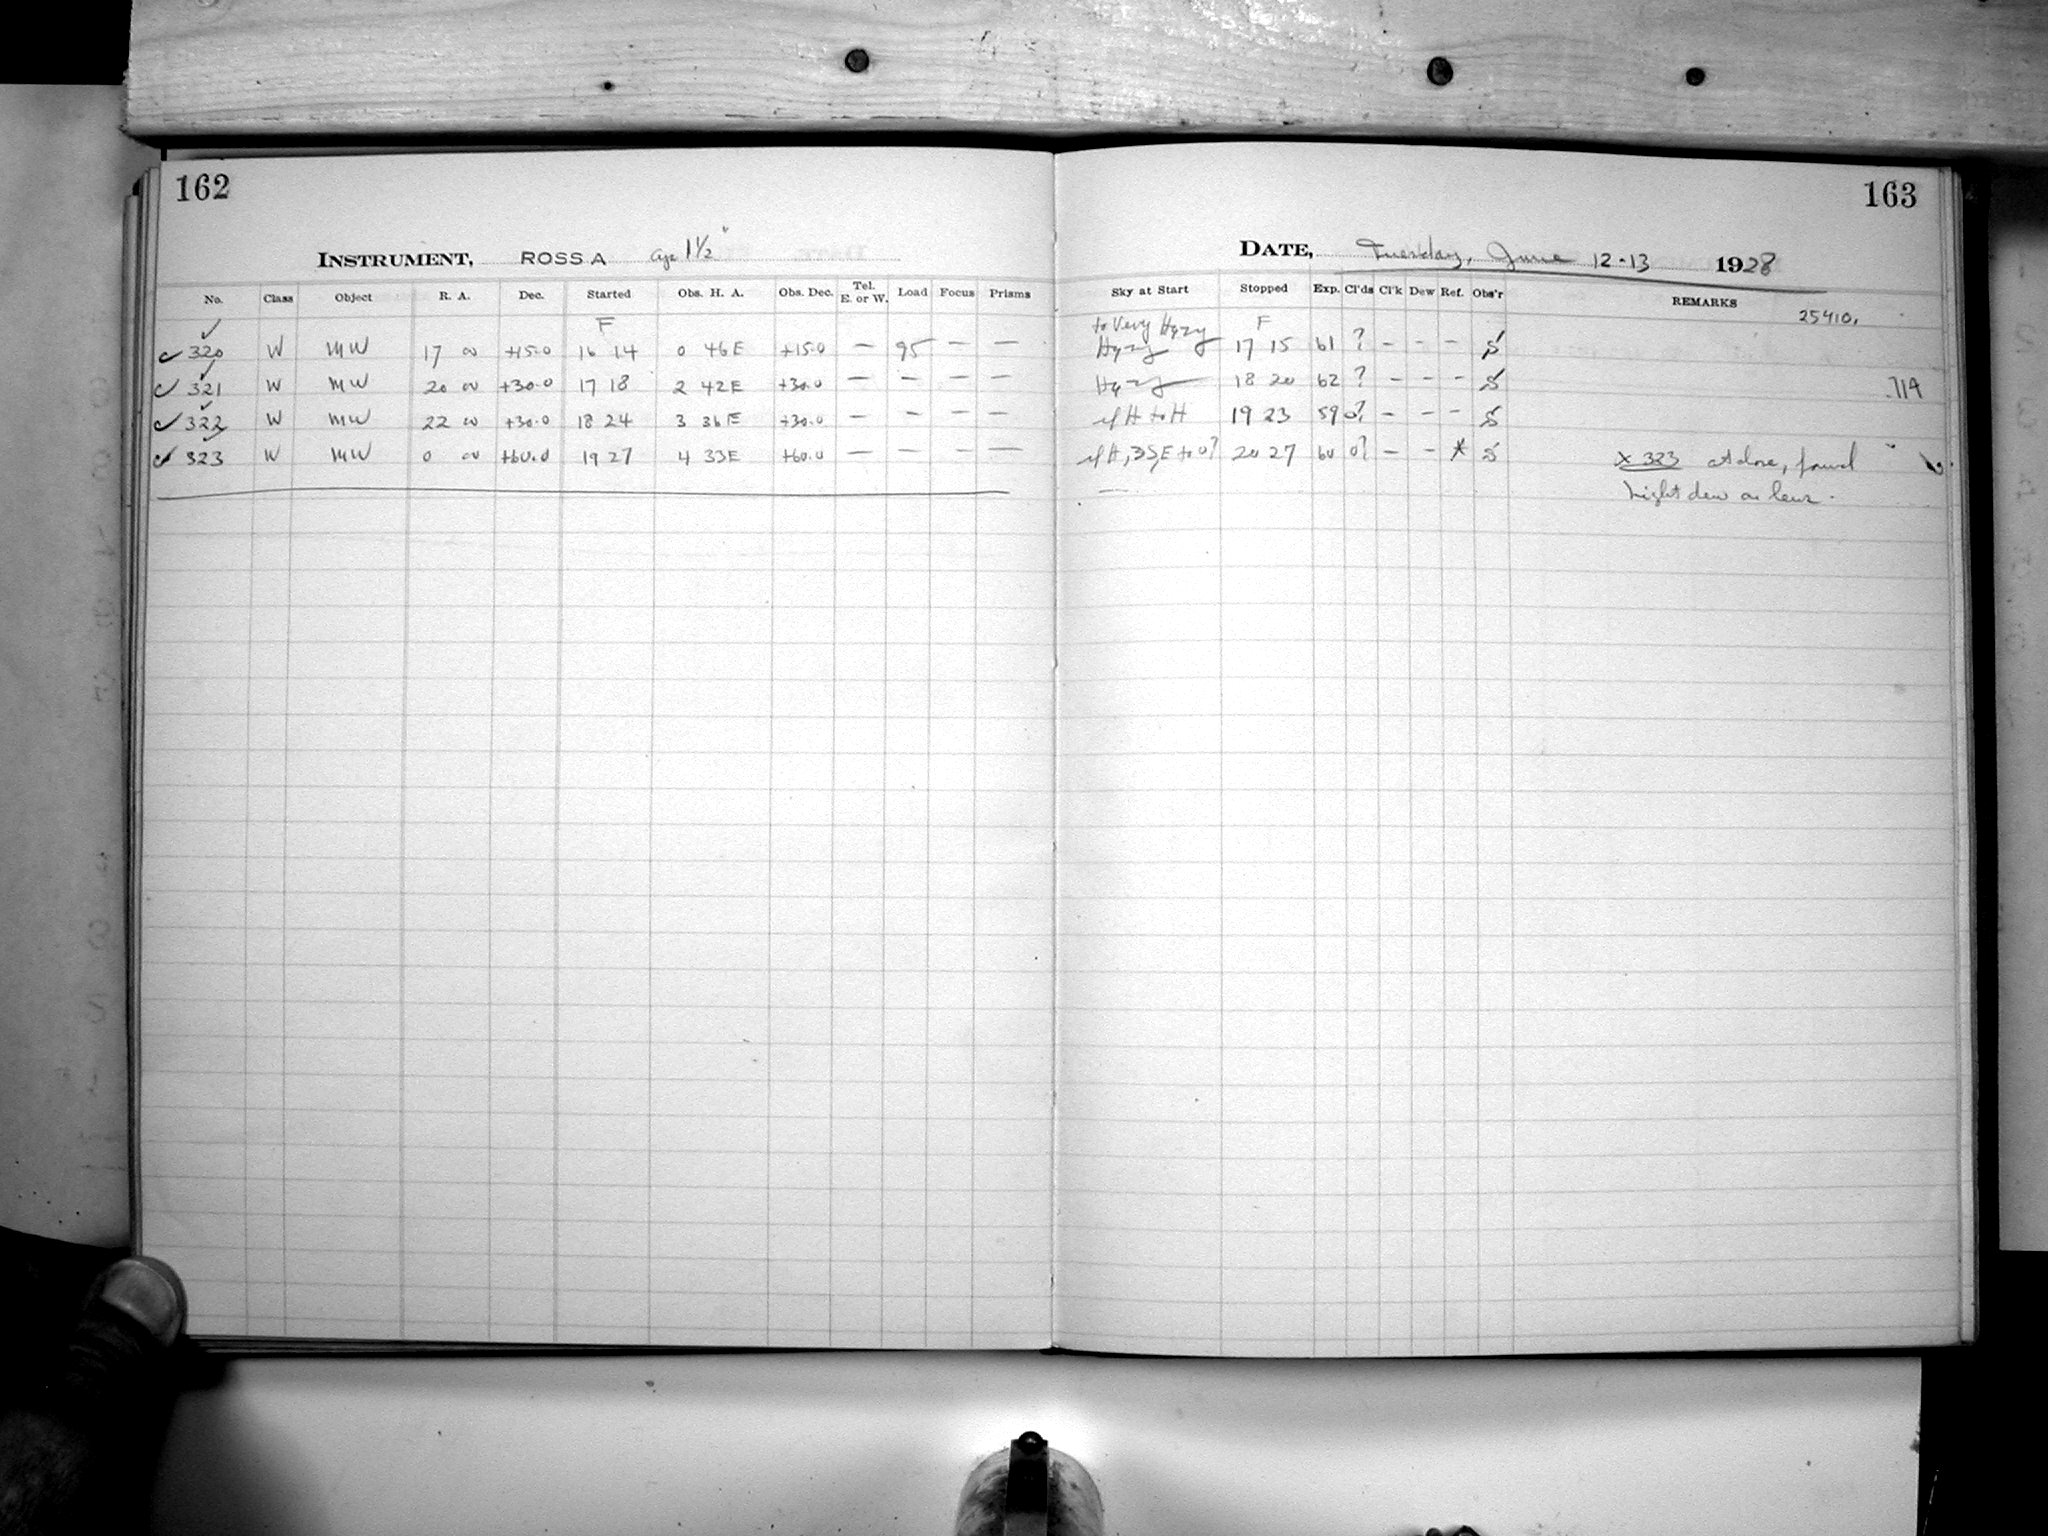 162
INSTRUMENT, ROSS A ap 1½"
No. Class Object R. A. Dec. Started Obs. H. A. Obs. Dec. Tel. E. or W. Load Focus Prisms
F
320 W MW 17 00 +15.0 16 14 0 46E +15.0 — 95 — —
321 W MW 20 00 +30.0 17 18 2 42E +30.0 — — — —
322 W MW 22 00 +30.0 18 24 3 36E +30.0 — — — —
323 W MW 0 00 +60.0 19 27 4 33E +60.0 — — — —
163
DATE, Tuesday, June 12-13 1928
Sky at Start Stopped Exp. Cl'ds Cl'k Dew Ref. Obs'r REMARKS
25410.
to Very Hazy F
Hazy 17 15 61 ? - - - S
Hazy 18 20 62 ? - - - S 714
H to H 19 23 59 0? - - - S
H, 3S,E to 0? 20 27 60 0? - - * S
X 323 At close, found
light dew on lens.